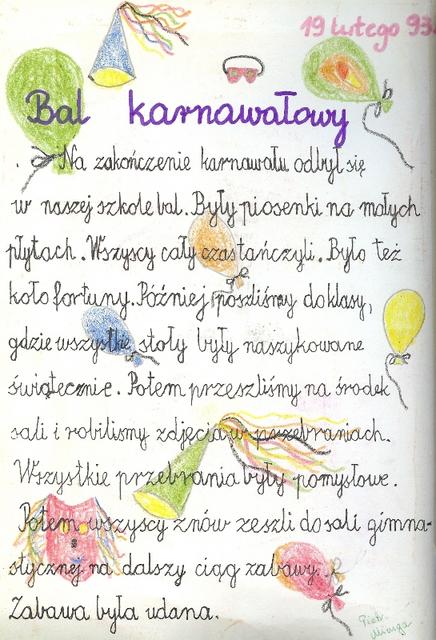 19 lutego 93r.
Bal karnawałowy
Na zakończenie karnawału odbył się
w naszej szkole bal. Były piosenki na małych
płytach. Wszyscy cały czas tańczyli. Było też
koło fortuny. Później poszliśmy do klasy,
gdzie wszystkie stoły były naszykowane
świątecznie. Potem przeszliśmy na środek
sali i robilismy zdjęcia w przebraniach.
Wszystkie przebrania były pomysłowe.
Potem wszyscy znów zeszli do sali gimna-
stycznej na dalszy ciąg zabawy.
Zabawa była udana.
Piotr